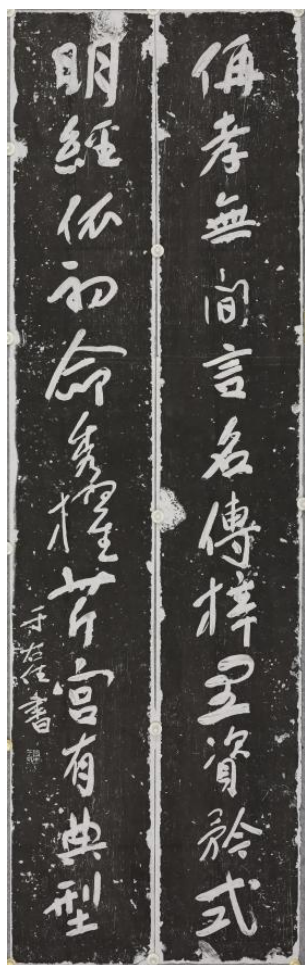 侢孝無間言名傳梓里資矜式
明經依初命秀擢芹宮有典型
于右任書